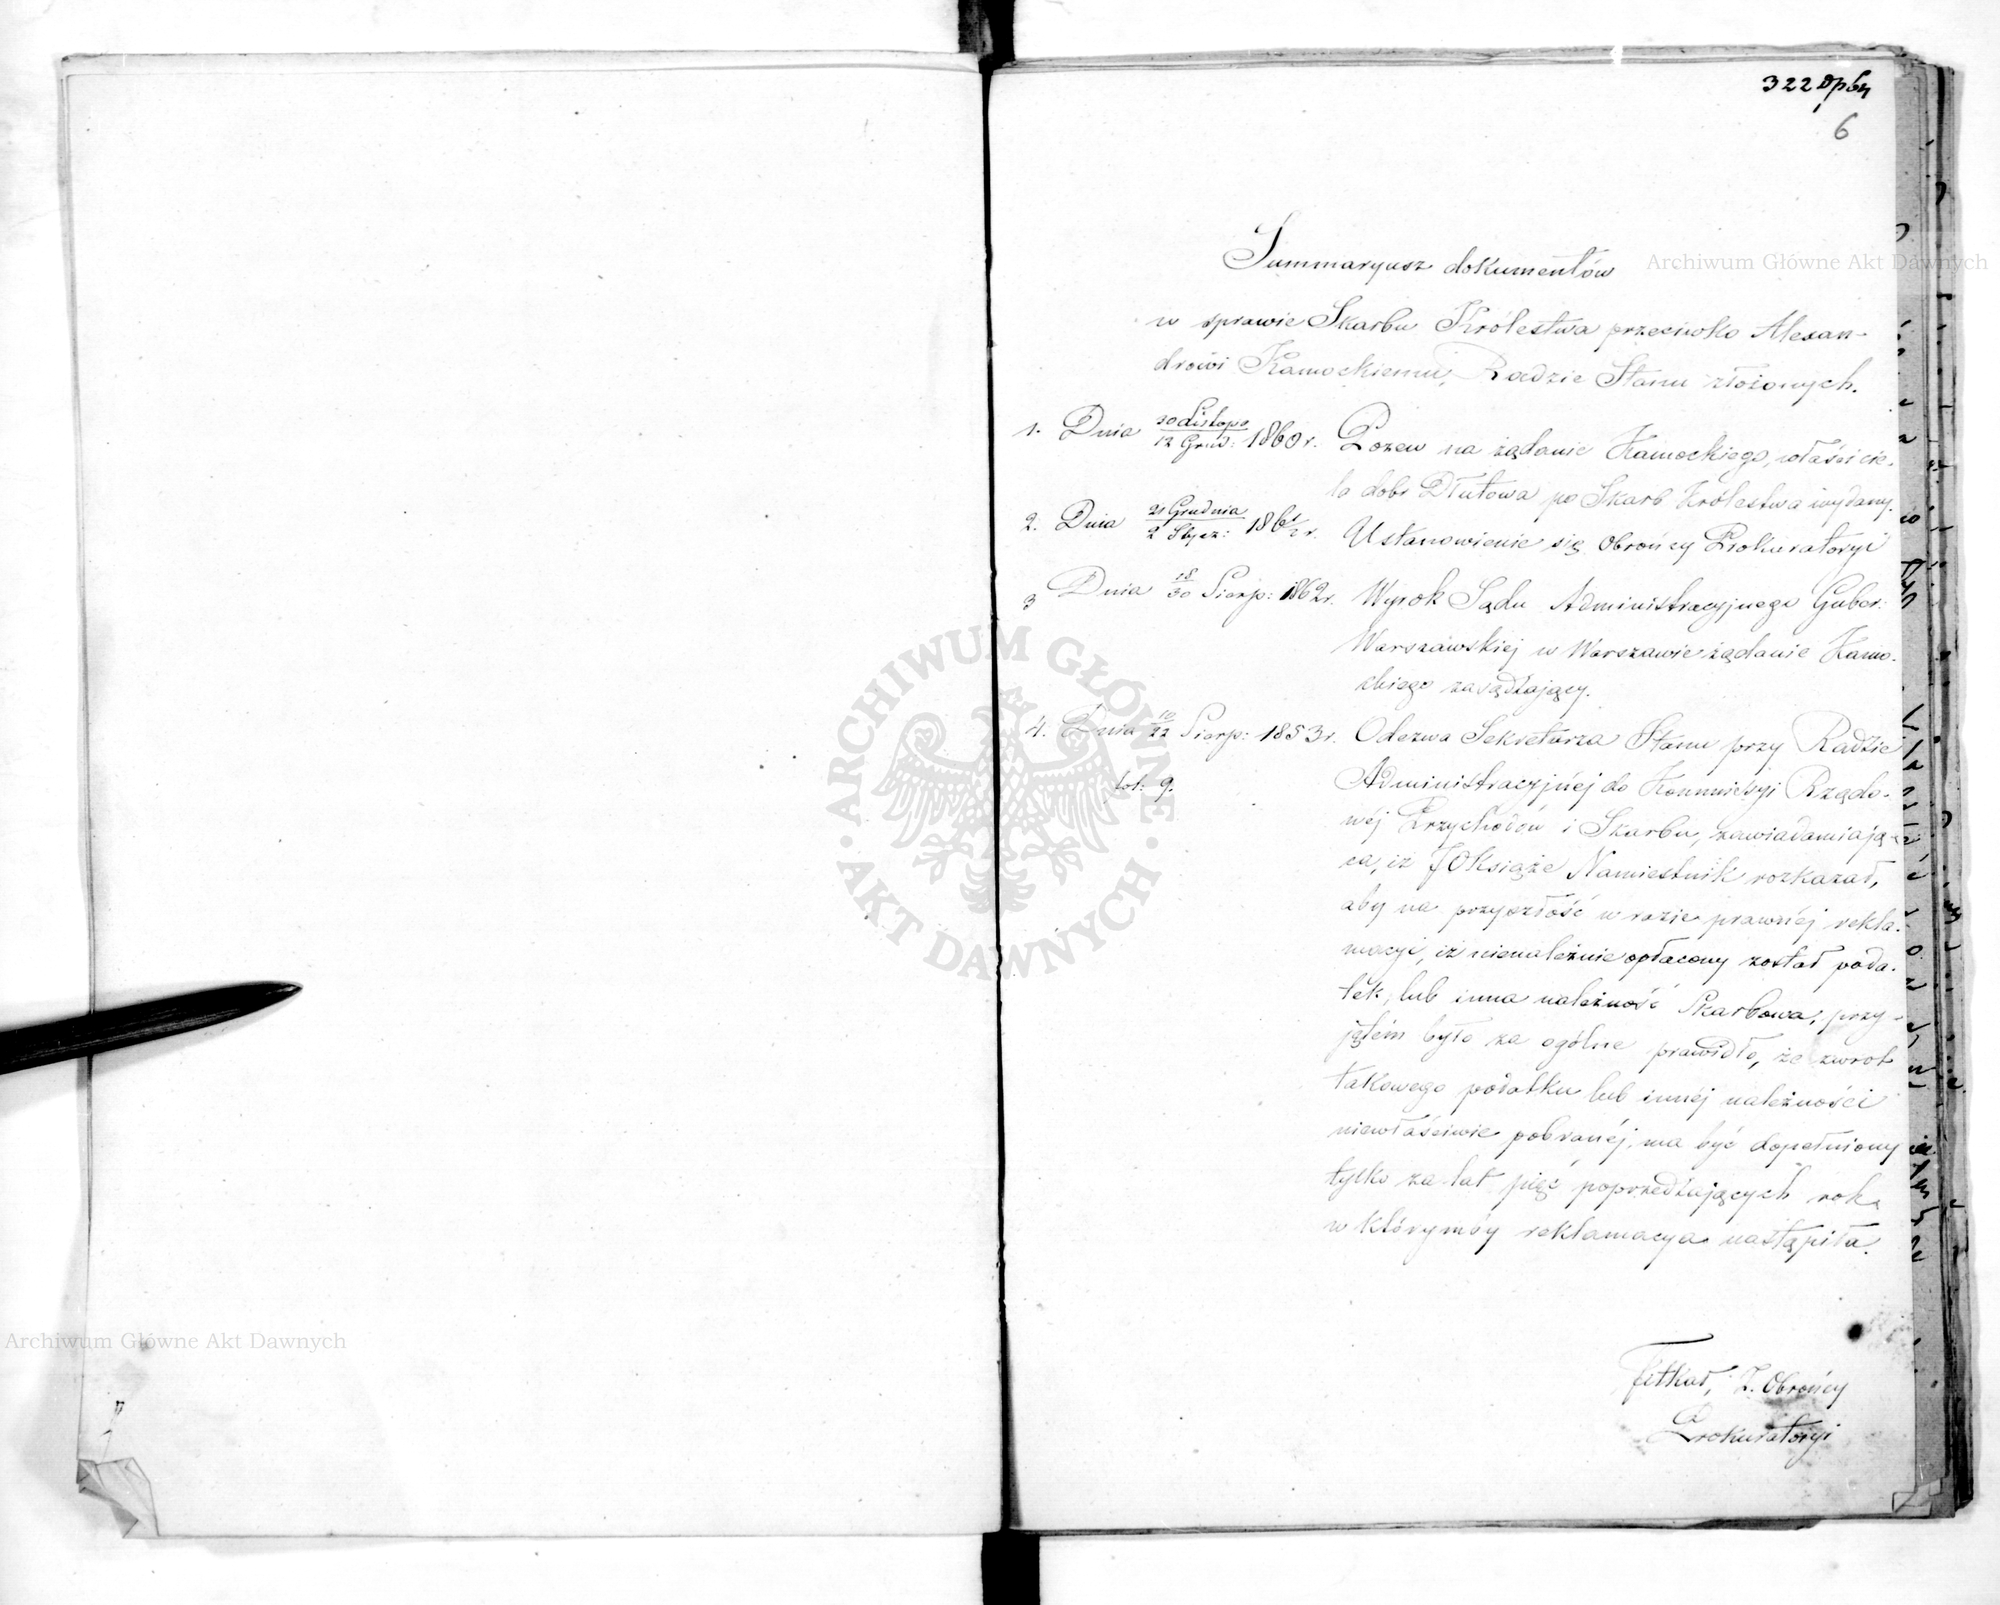 322
6
Summaryusz dokumentów
w sprawie Skarbu Królestwa przeciwko Alexan-
drowi Kamockiemu, Radzie Stanu złożonych.
1. Dnia 30 Listopa / 12 Grud: 1860 r. Pozew na żądanie Kamockiego, właścicie-
la dóbr Dłutowa po Skarb Królestwa wydany.
2. Dnia 21 Grudnia / 2 Stycz: 186 1/2 r. Ustanowienie się Obrońcy Prokuratoryi
3 Dnia 18/30 Sierp: 1862 r. Wyrok Sądu Administracyjnego Guber:
Warszawskiej w Warszawie żądanie Kamo-
ckiego zasądzający.
4. Dnia 10/22 Sierp: 1853 r. Odezwa Sekretarza Stanu przy Radzie
fol: 9. Administracyjnéj do Kommissyi Rządo-
wéj Przychodów i Skarbu, zawiadamiają-
ca, iż JO Książe Namiestnik rozkazał,
aby na przyszłość w razie prawnéj rekla-
macyi, iż nienależnie opłacony został poda-
tek, lub inna należność Skarbowa, przy-
jętém było za ogólne prawidło, że zwrot
takowego podatku lub innéj należności
niewłaściwie pobranéj, ma być dopełniony
tylko za lat pięć poprzedzających rok,
w którymby reklamacya nastąpiła.
Z. Obrońcy
Prokuratoryi
Archiwum Główne Akt Dawnych
Archiwum Główne Akt Dawnych
ARCHIWUM GŁÓWNE · AKT DAWNYCH ·